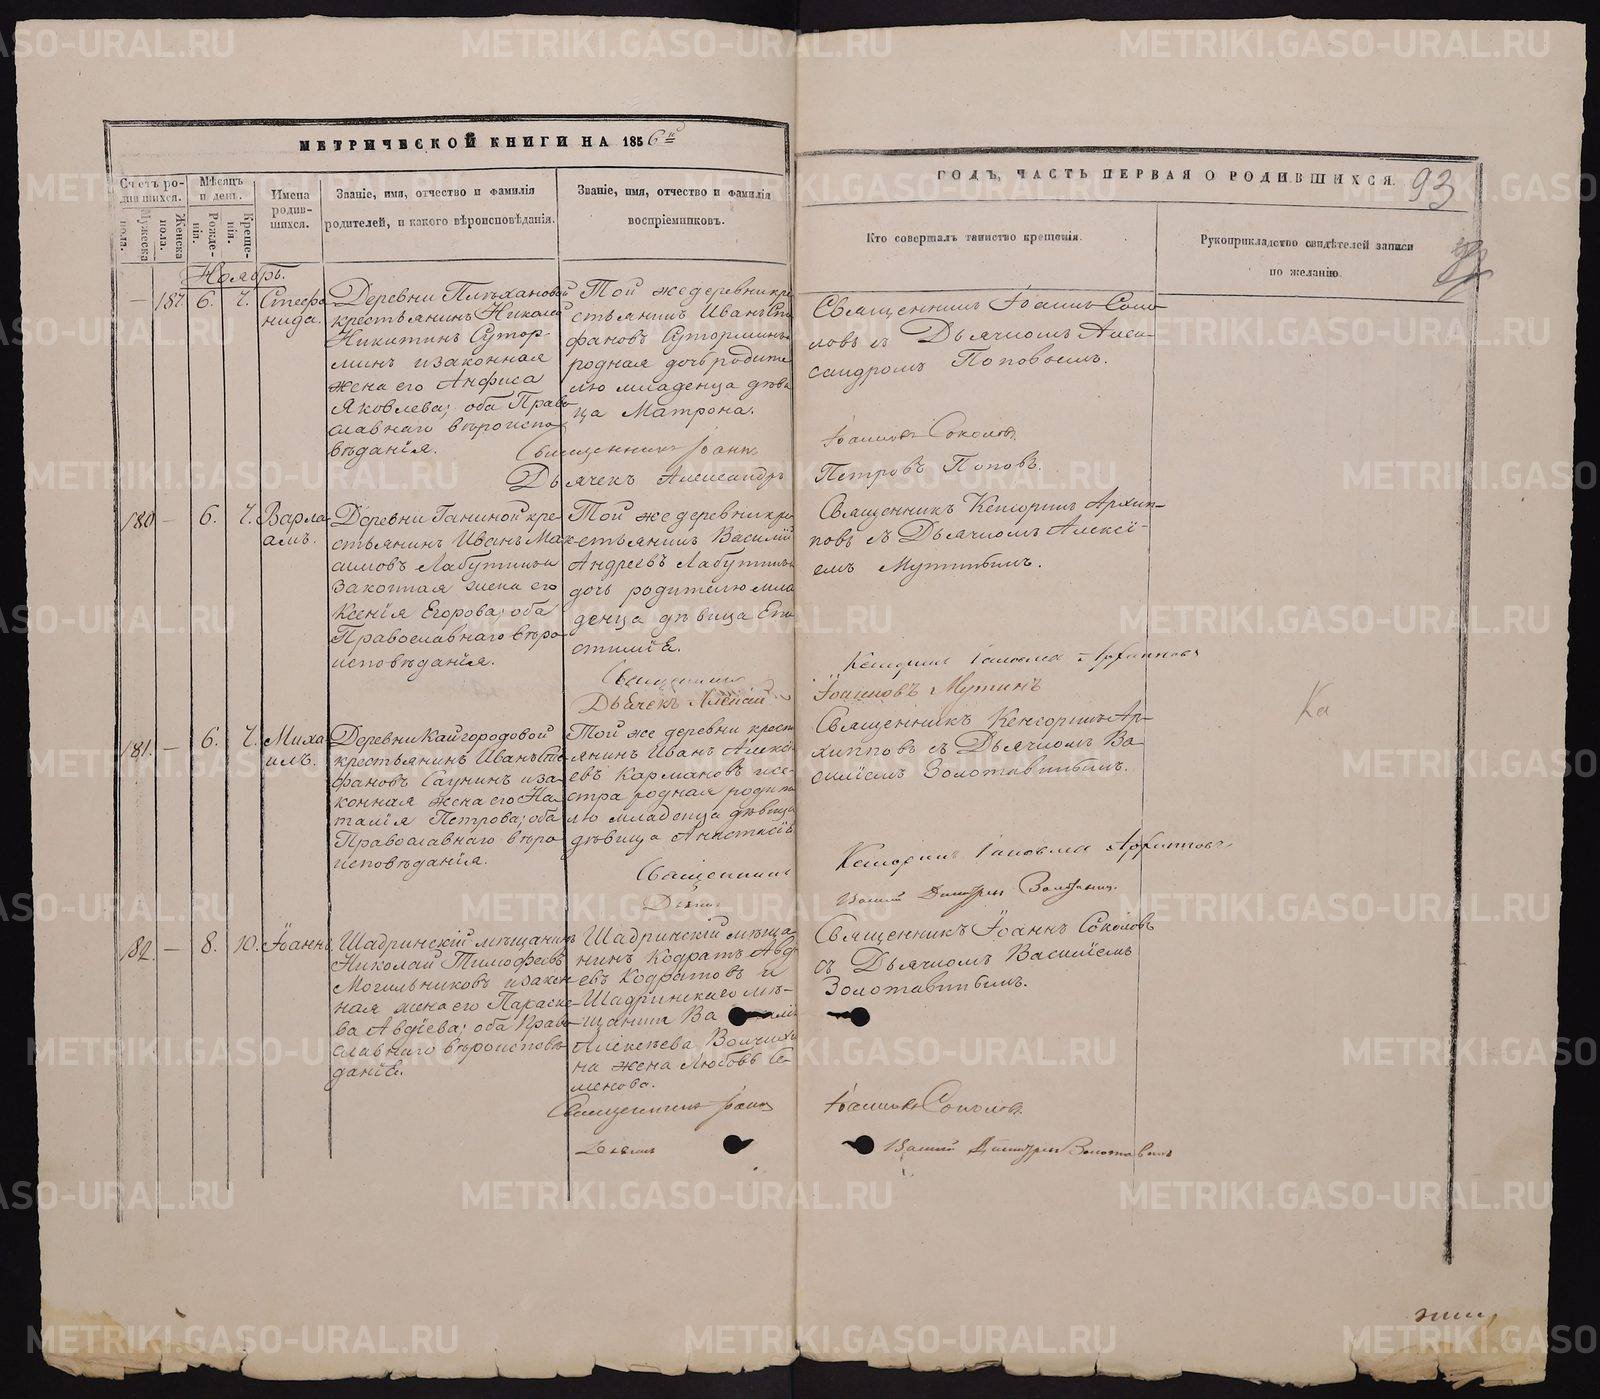 МЕТРИЧЕСКОЙ КНИГИ НА 1856й
ГОДЪ, ЧАСТЬ ПЕРВАЯ О РОДИВШИХСЯ.
93
Счетъ родившихся.
Мужеска пола.
Женска пола.
Мѣсяцъ и день.
Рожденія.
Крещенія.
Имена родившихся.
Званіе, имя, отчество и фамилія
родителей, и какого вѣроисповѣданія.
Званіе, имя, отчество и фамилія
воспріемниковъ.
Кто совершалъ таинство крещенія.
Рукоприкладство свидѣтелей записи
по желанію
Ноябрь.
— 187. 6. 7.
Стефа
нида.
Деревни Плѣхановой
крестьянинъ Николай
Никитинъ Сутор-
минъ и законная
жена его Анфиса
Яковлева; оба Право
славнаго вѣроиспо
вѣданія.
Той же деревни кре
стьянинъ Иванъ Сте
фановъ Суторминъ
родная дочь родите
лю младенца дѣви
ца Матрона.
Священникъ Іоаннъ
Дьячекъ Александръ
Священникъ Іоаннъ Соко
ловъ съ Дьячкомъ Алек-
сандромъ Поповымъ.
Іоанновъ Соколовъ
Петровъ Поповъ.
180 — 6. 7.
Варла
амъ.
Деревни Ганиной кре-
стьянинъ Иванъ Мак
симовъ Лабутинъ и
законная жена его
Ксенія Егорова; оба
Православнаго вѣро
исповѣданія.
Той же деревни кре
стьянинъ Василій
Андреевъ Лабутинъ
дочь родителю мла
денца дѣвица
Священникъ
Дьячекъ Алексій
Священникъ Кенсоринъ Архип-
повъ съ Дьячкомъ Алексі-
емъ Мутинымъ.
Кенсоринъ Іаковлевъ Архипповъ
Іоанновъ Мутинъ
181. — 6. 7.
Миха
илъ.
Деревни Кайгородовой
крестьянинъ Иванъ Сте
фановъ Саунинъ и за-
конная жена его На-
талія Петрова; оба
Православнаго вѣро
исповѣданія.
Той же деревни крест
янинъ Иванъ Алексѣ
евъ Кармановъ и се-
стра родная родите
лю младенца дѣвица
дѣвица Анастасія
Священникъ
Дьячекъ
Священникъ Кенсоринъ Ар-
хипповъ съ Дьячкомъ Ва-
силіемъ Золотавинымъ.
Кенсоринъ Іаковлевъ Архипповъ
Василій Димитріевъ Золотавинъ.
182. — 8. 10.
Іоаннъ
Шадринскій мѣщанинъ
Николай Тимофеевъ
Могильниковъ и закон
ная жена его Параске
ва Авдіева; оба Право
славнаго вѣроисповѣ
данія.
Шадринскій мѣща
нинъ Кодратъ Авд
евъ Кодратовъ и
Шадринскаго мѣ-
щанина Ва
Алексѣева
на жена Любовь Се-
менова.
Священникъ Іоаннъ
Дьячекъ
Священникъ Іоаннъ Соколовъ
съ Дьячкомъ Василіемъ
Золотавинымъ.
Іоанновъ Соколовъ
Василій Димитріевъ Золотавинъ
Ка
METRIKI.GASO-URAL.RU